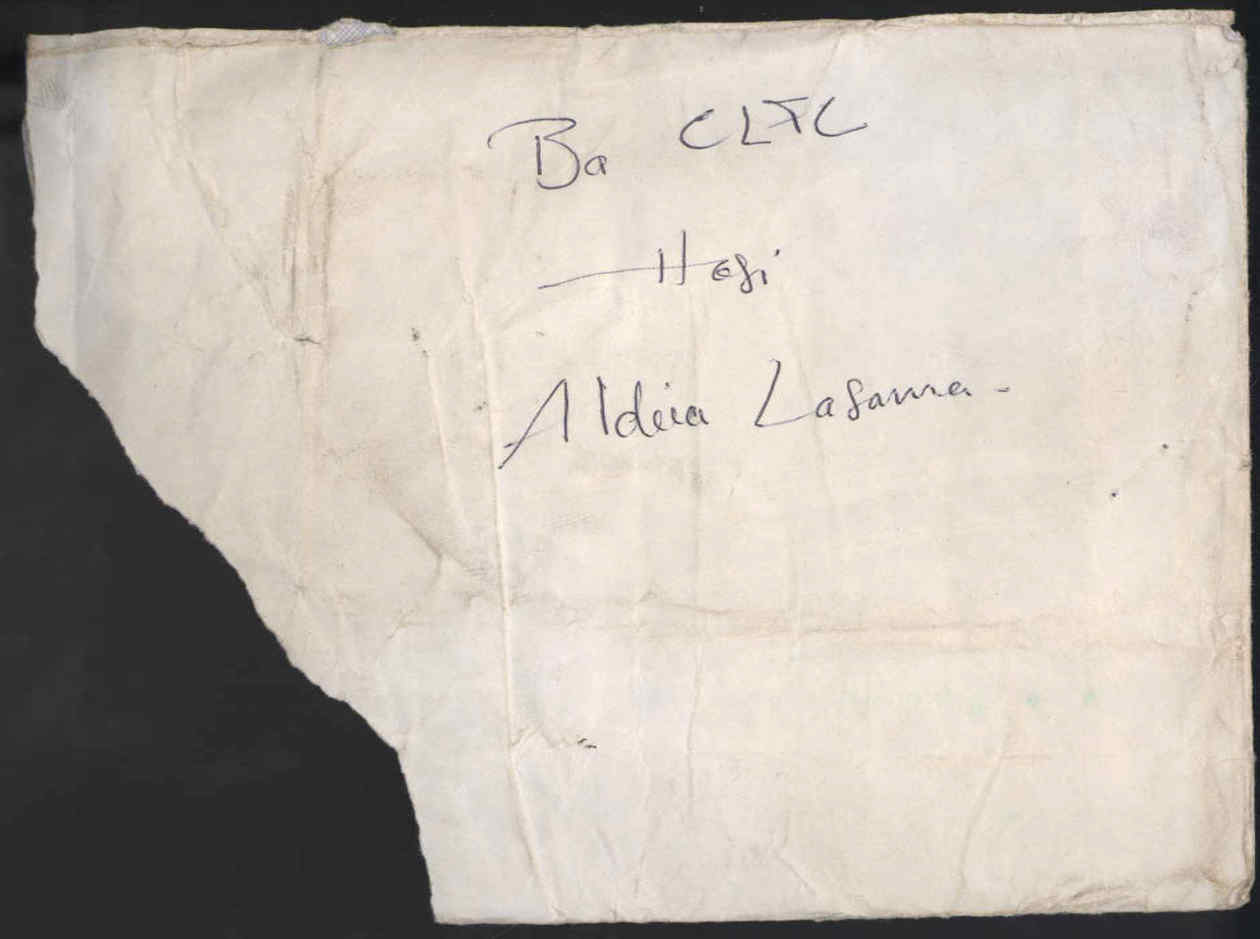 Ba CLTC
Hosi
Aldeia Lasama -